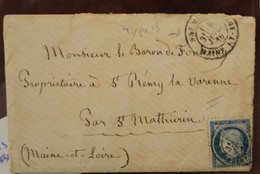 Type II
Monsieur le Baron de
Propriétaire à St Rémy la Varenne
Par St Mathurin
(Maine-et-Loire)